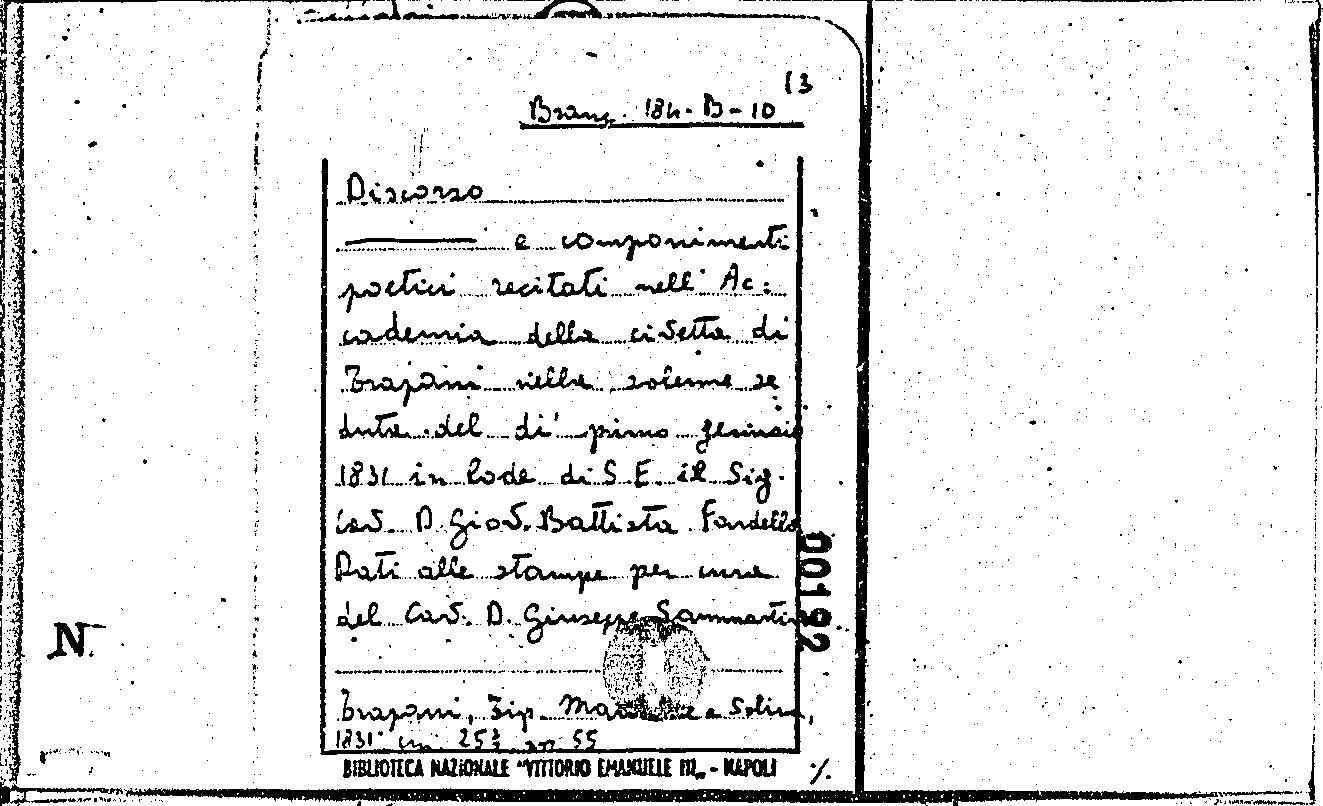 13
Branc. 184-B-10
Discorso
e componimenti
poetici recitati nell' Ac:
cademia della civetta di
Trapani nella solenne se
duta del di' primo gennaio
1831 in lode di S. E. il Sig.
Cav. D. Giov. Battista Fardella
Dati alle stampe per cura
del Cav. D. Giuseppe Sammartino
Trapani, Tip. e Solina,
1831 in 55
BIBLIOTECA NAZIONALE "VITTORIO EMANUELE III„ - NAPOLI
%.
00192
N